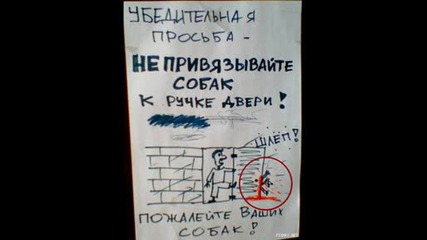 УБЕДИТЕЛЬНАЯ
ПРОСЬБА –
НЕ ПРИВЯЗЫВАЙТЕ
СОБАК
К РУЧКЕ ДВЕРИ!
ШЛЁП!
ПОЖАЛЕЙТЕ ВАШИХ
СОБАК!